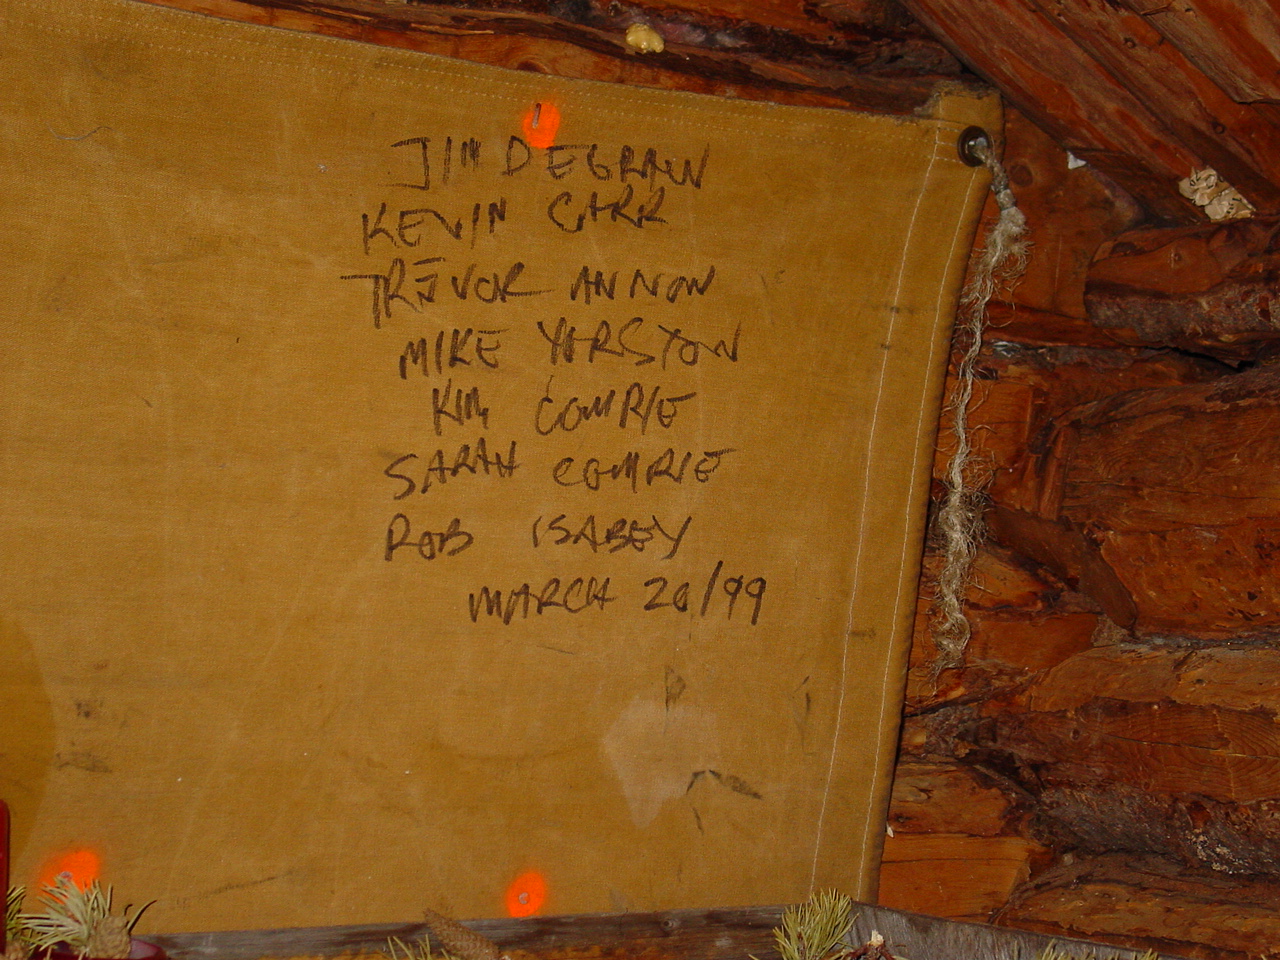 JIM DEGRAW
KEVIN CARR
TREVOR ANNON
MIKE YORSTON
KIM COMRIE
SARAH COMRIE
ROB ISABEY
MARCH 20/99